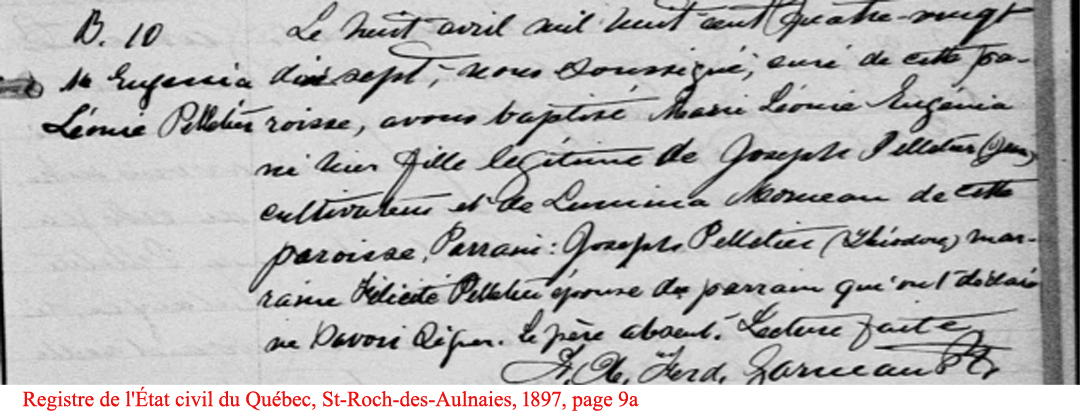 B. 10
M Eugenia
Léonie Pelletier
Le huit avril mil huit cent quatre-vingt
dix sept, nous soussigné, curé de cette pa-
roisse, avons baptisé Marie Léonie Eugénia
né hier fille legitime de Joseph Pelletier (Jean)
cultivateur et de Lumina Morneau de cette
paroisse. Parrain: Joseph Pelletier (Théodore) mar-
raine Félicité Pelletier épouse du parrain qui ont déclaré
ne savoir signer. Le père absent. Lecture faite
F. X. Ferd. Garneau Ptr
Registre de l'État civil du Québec, St-Roch-des-Aulnaies, 1897, page 9a